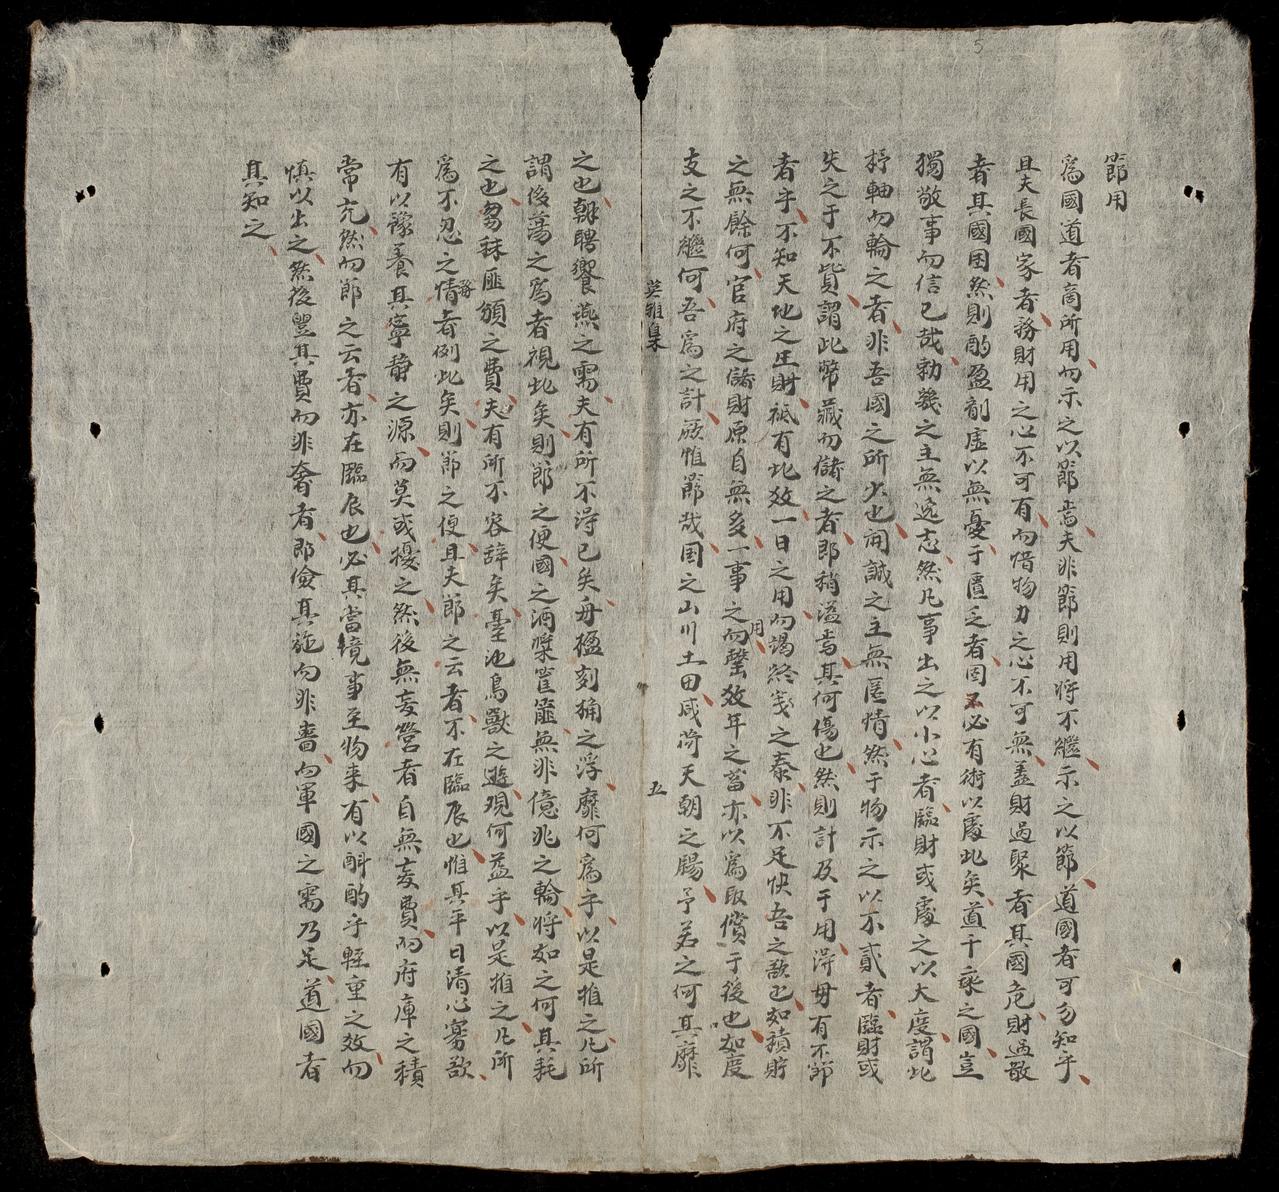 節用
爲國道者商所用而示之以節焉夫非節則用將不繼示之以節道國者可勿知乎
且夫長國家者務財用之心不可有而惜物力之心不可無盖財過聚者其國危財過散
者其國困然則酌盈剤虛以無憂于匱乏者固必有術以處此矣道千乘之國豈
獨敬事而信已哉勅幾之主無逸志然凡事出之以小心者臨財或處之以大度謂此
杼軸而輪之者非吾國之所少也開誠之主無匿情然于物示之以不貳者臨財或
失之于不貲謂此幣藏而儲之者即稍溢焉其何傷也然則計及于用得毋有不節
者乎不知天地之生財祗有此效一日之用而竭終歲之泰非不足快吾之欲也如積貯
之無餘何官府之儲財原自無多一事之用而罄效年之畜亦以爲取償于後也如度
支之不繼何吾爲之計厥惟節哉国之山川土田咸荷天朝之賜予若之何其靡
英雅集
五
之也朝聘饗燕之需夫有所不得已矣丹楹刻桷之浮靡何爲乎以是推之凡所
謂侈蕩之爲者視此矣則節之便國之酒漿筐篚無非億兆之輪將如之何其耗
之也芻秣匪頒之費夫有所不容辞矣臺池鳥獸之遊現何益乎以是推之凡所
爲不忍之情者例此矣則節之便且夫節之云者不在臨辰也惟其平日清心寡欲
有以豫養其寧静之源而莫或擾之然後無妄營者自無妄費而府庫之積
常充然而節之云者亦在臨辰也必其當境事至物来有以斟酌乎輕重之效而
慎以出之然後豐其費而非奢者即儉其施而非嗇而軍國之需乃足道國者
其知之